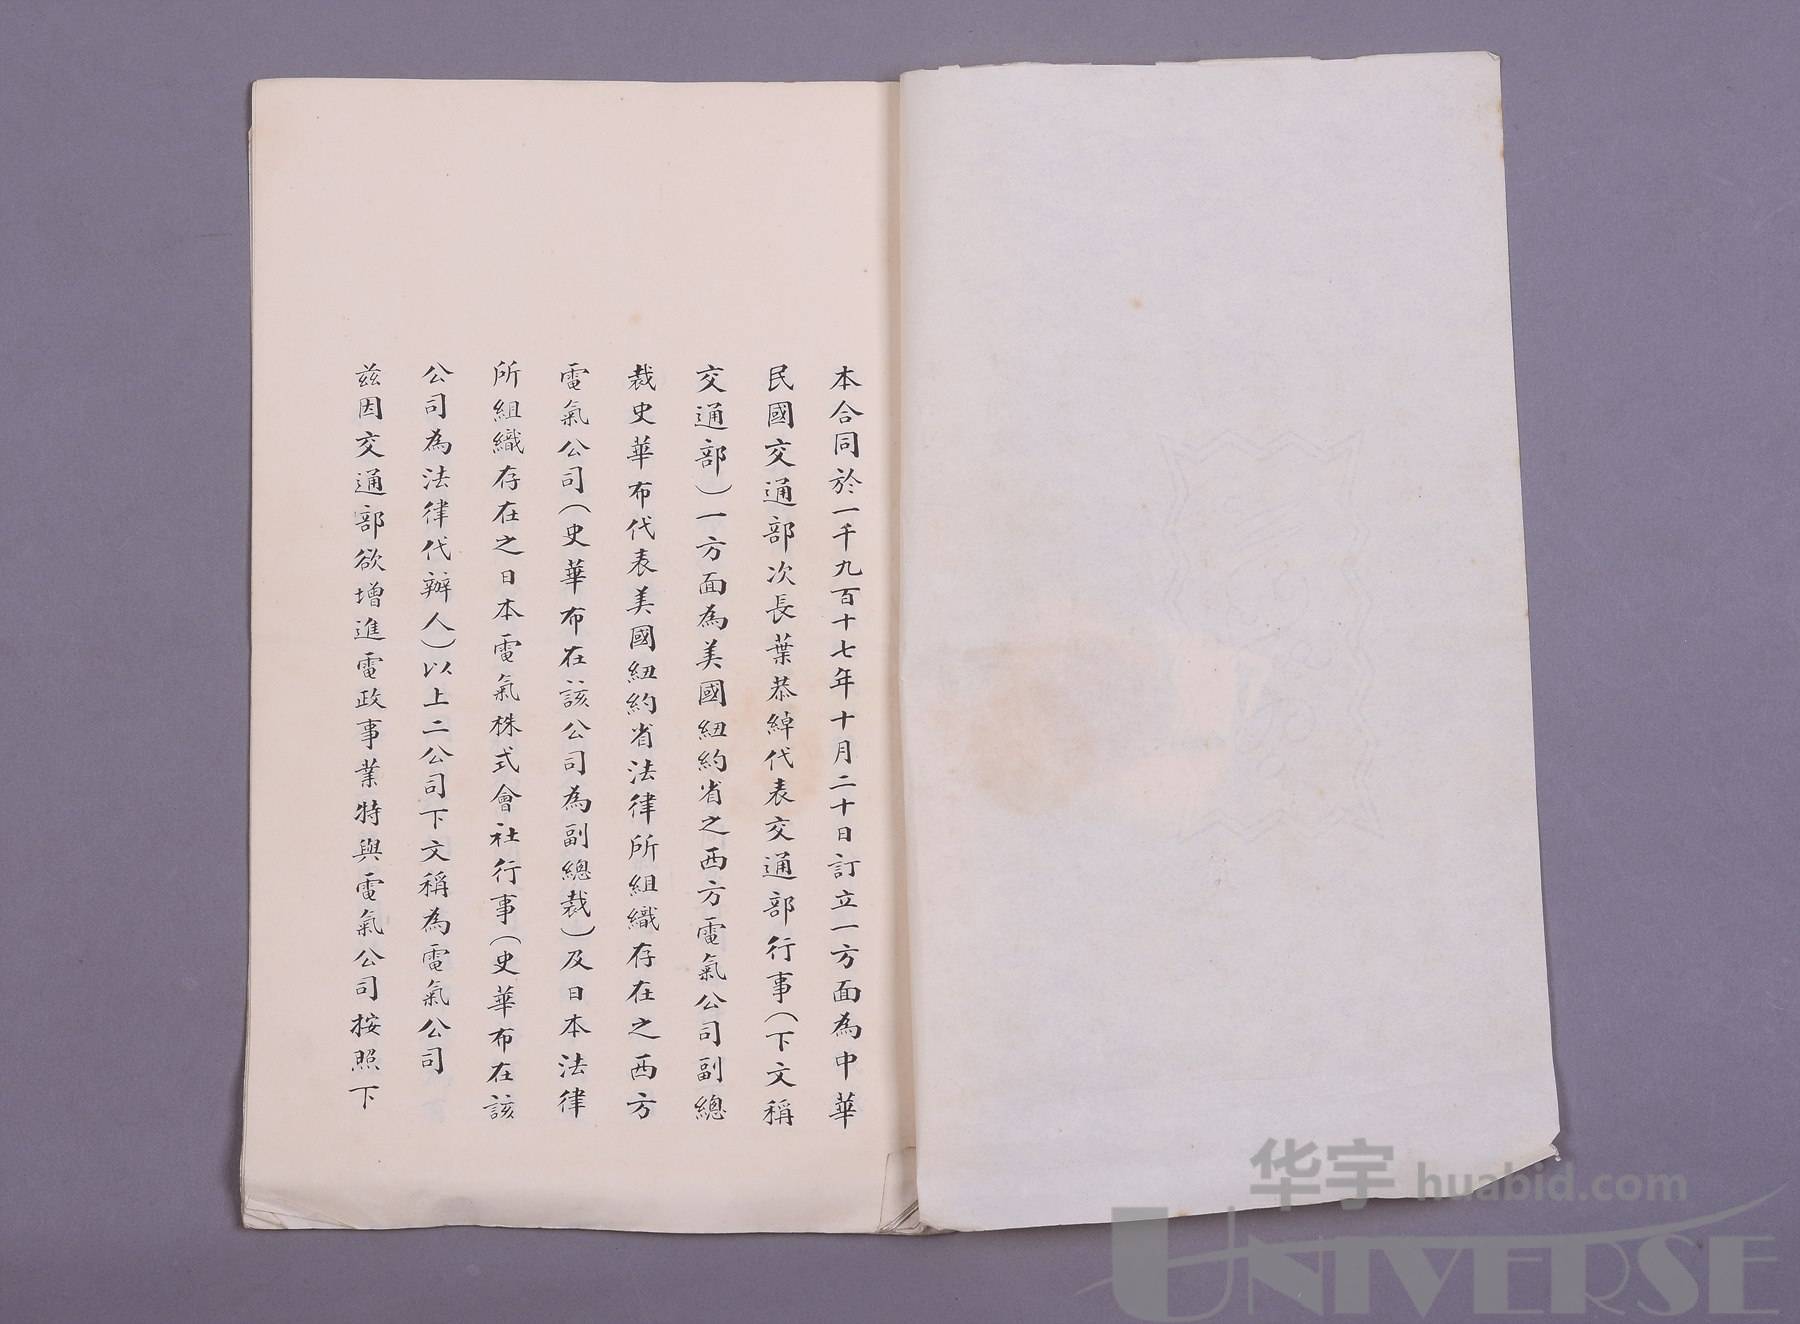 本合同於一千九百十七年十月二十日訂立一方面為中華
民國交通部次長葉恭綽代表交通部行事（下文稱
交通部）一方面為美國紐約省之西方電氣公司副總
裁史華布代表美國紐約省法律所組織存在之西方
電氣公司（史華布在該公司為副總裁）及日本法律
所組織存在之日本電氣株式會社行事（史華布在該
公司為法律代辦人）以上二公司下文稱為電氣公司
茲因交通部欲增進電政事業特與電氣公司按照下
华宇 huabid.com
UNIVERSE